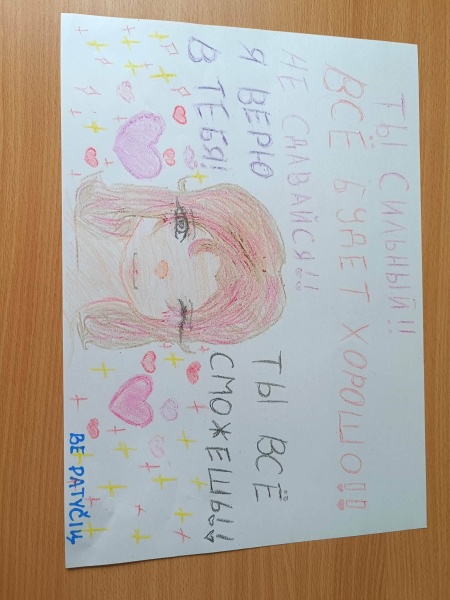 ТЫ СИЛЬНЫЙ!!
ВСЁ БУДЕТ ХОРОШО!!
НЕ СДАВАЙСЯ!!
Я ВЕРЮ
В ТЕБЯ!
ТЫ ВСЁ
СМОЖЕШЬ!!
ВЕ РАТУČIЦ